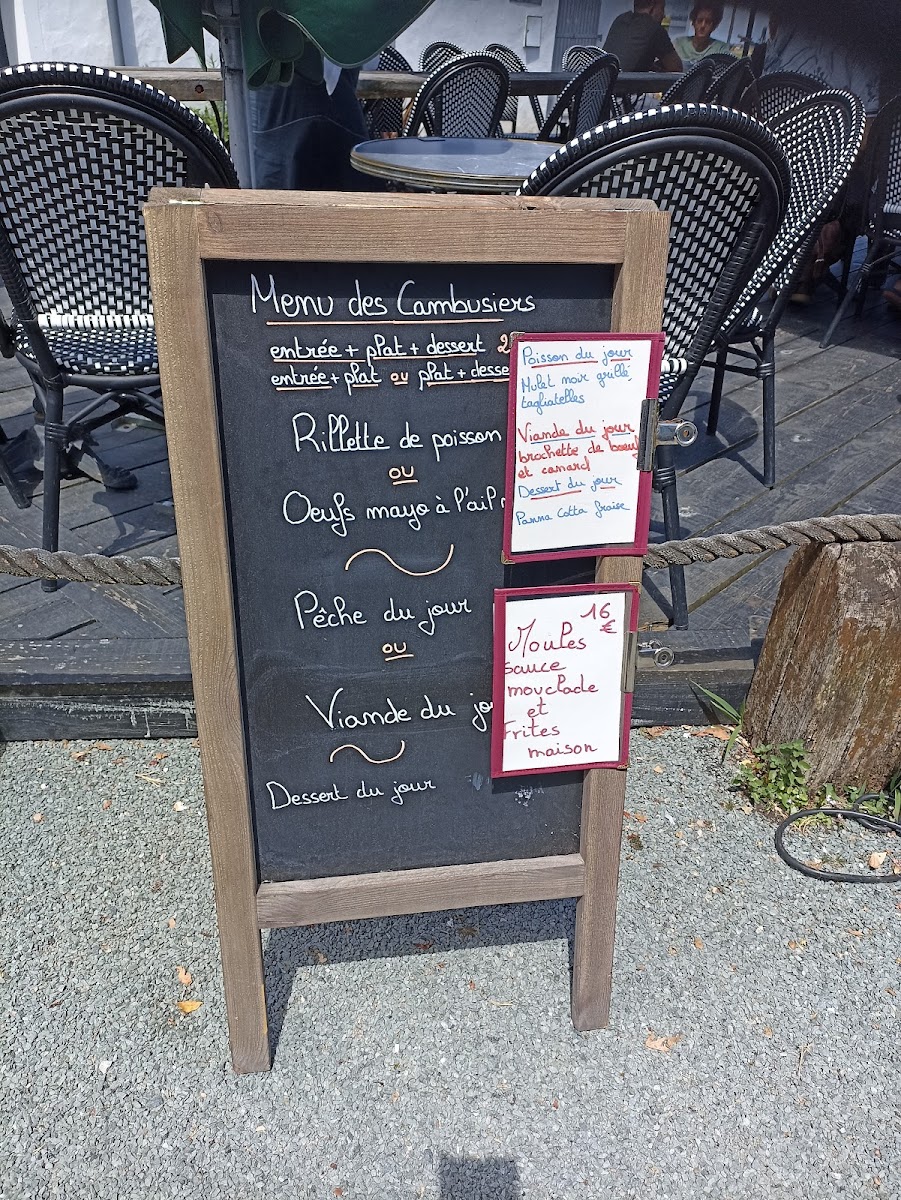 Menu des Cambusiers
entrée + plat + dessert 2
entrée + plat ou plat + desse
Rillette de poisson
ou
Oeufs mayo à l'ail
Pêche du jour
ou
Viande du jo
Dessert du jour
Poisson du jour
Mulet noir grillé
tagliatelles
Viande du jour
brochette de boeuf
et canard
Dessert du jour
Panna Cotta fraise
16
€
Moules
sauce
mouclade
et
Frites
maison